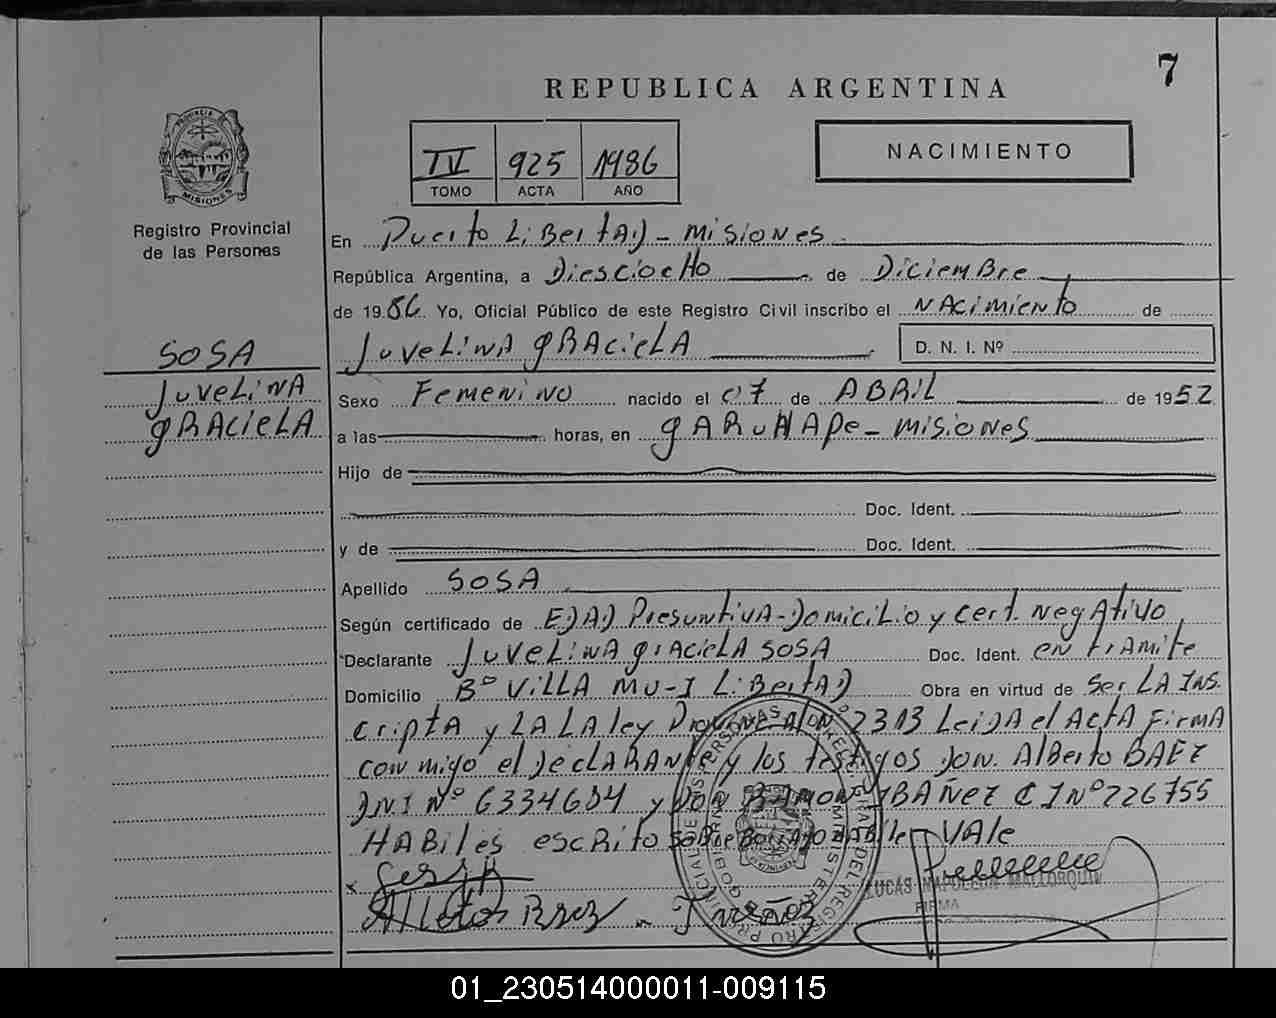 7
REPUBLICA ARGENTINA
IV 925 1986
TOMO ACTA AÑO
NACIMIENTO
PROVINCIA DE MISIONES
Registro Provincial
de las Personas
SOSA
JuveLiNA
gRAcieLA
En Puerto LiBertAD - Misiones
República Argentina, a DiesciocHo de DiciemBre
de 1986 Yo, Oficial Público de este Registro Civil inscribo el NAcimiento de
JuveLiNA gRAcieLA D. N. I. Nº
Sexo Femenino nacido el 07 de ABRiL de 1952
a las horas, en gARuHAPe - Misiones
Hijo de
Doc. Ident.
y de Doc. Ident.
Apellido SOSA
Según certificado de EDAD PresuntivA - Domicilio y cert. NegAtivo
Declarante JuveLiNA grAcieLA SOSA Doc. Ident. en trAmite
Domicilio Bº ViLLA MU-I LiBertAD Obra en virtud de Ser LA INS
criptA y LA LA ley ProvinciAl Nº 2313 LeiDA el ActA FirmA
conmigo el DecLARANte y los testigos Don. AlBerto BAEZ
DNI Nº 6334684 y Don RAMON IBAÑEZ CI Nº 226755
HABiles escRito soBre BorrADo HABiles VALe
LUCAS NAPOLEON MALLORQUIN
FIRMA
01_230514000011-009115